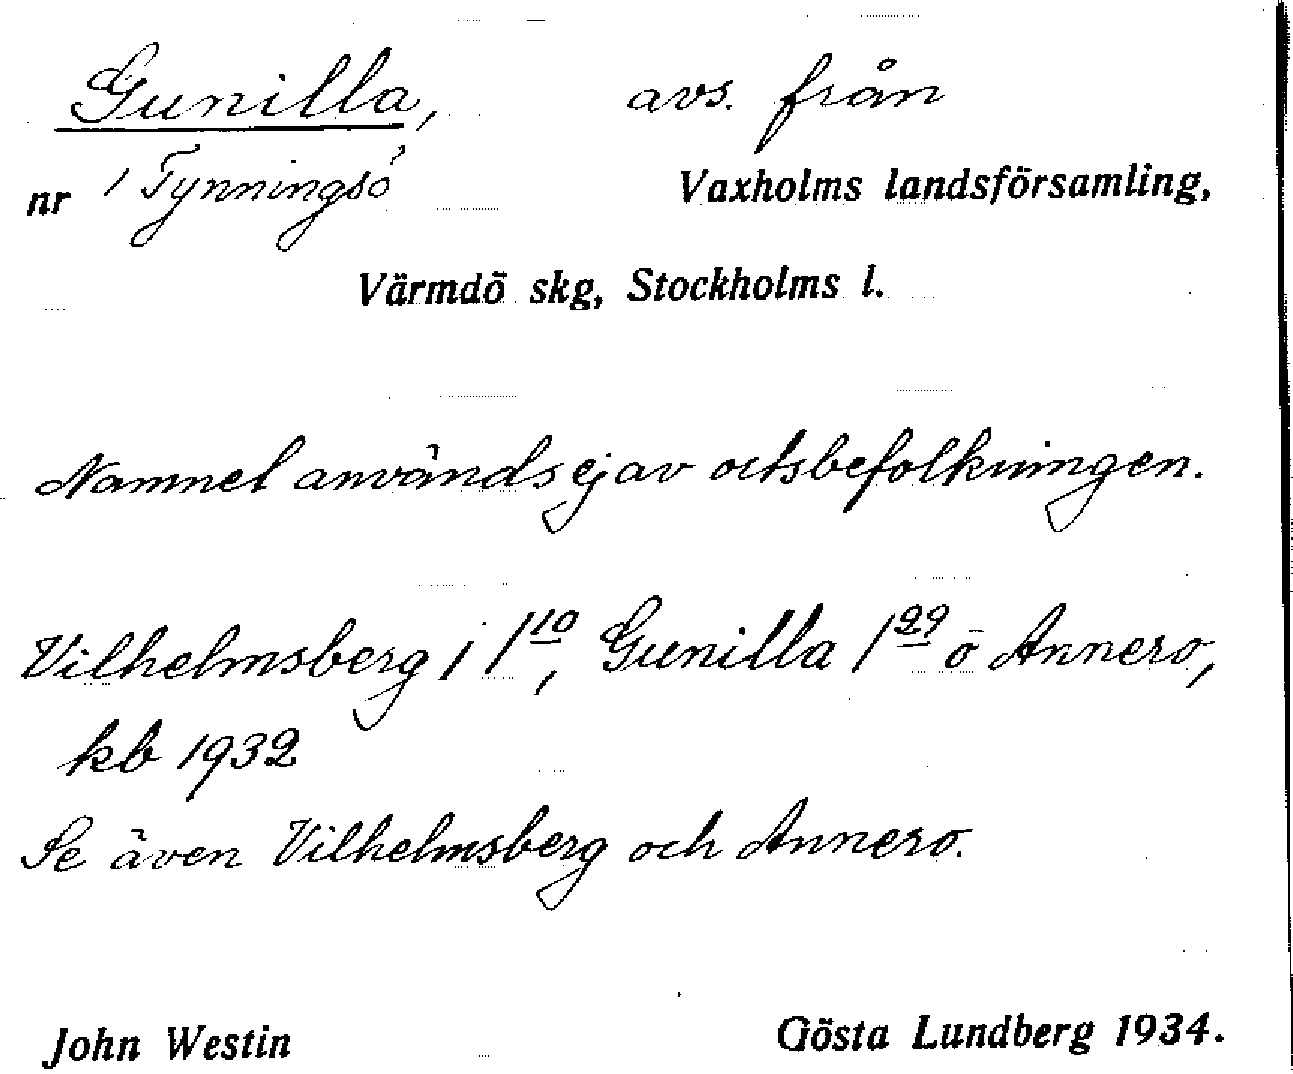 Gunilla, avs. från
nr 1 Tynningsö Vaxholms landsförsamling,
Värmdö skg, Stockholms l.
Namnet används ej av ortsbefolkningen.
Vilhelmsberg 1 1¹⁰, Gunilla 1²⁹ o Annero,
kb 1932
Se även Vilhelmsberg och Annero.
John Westin Gösta Lundberg 1934.